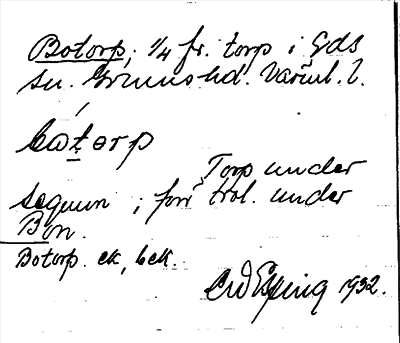 Botorp, 1/4 fr. torp i Eds
sn. Grums hd. Värml. l.
bωt̠ɵrp
Torp under
Segmon; förr trol. under
Bon.
Botorp. ek, bek.
E W Esping 1932.